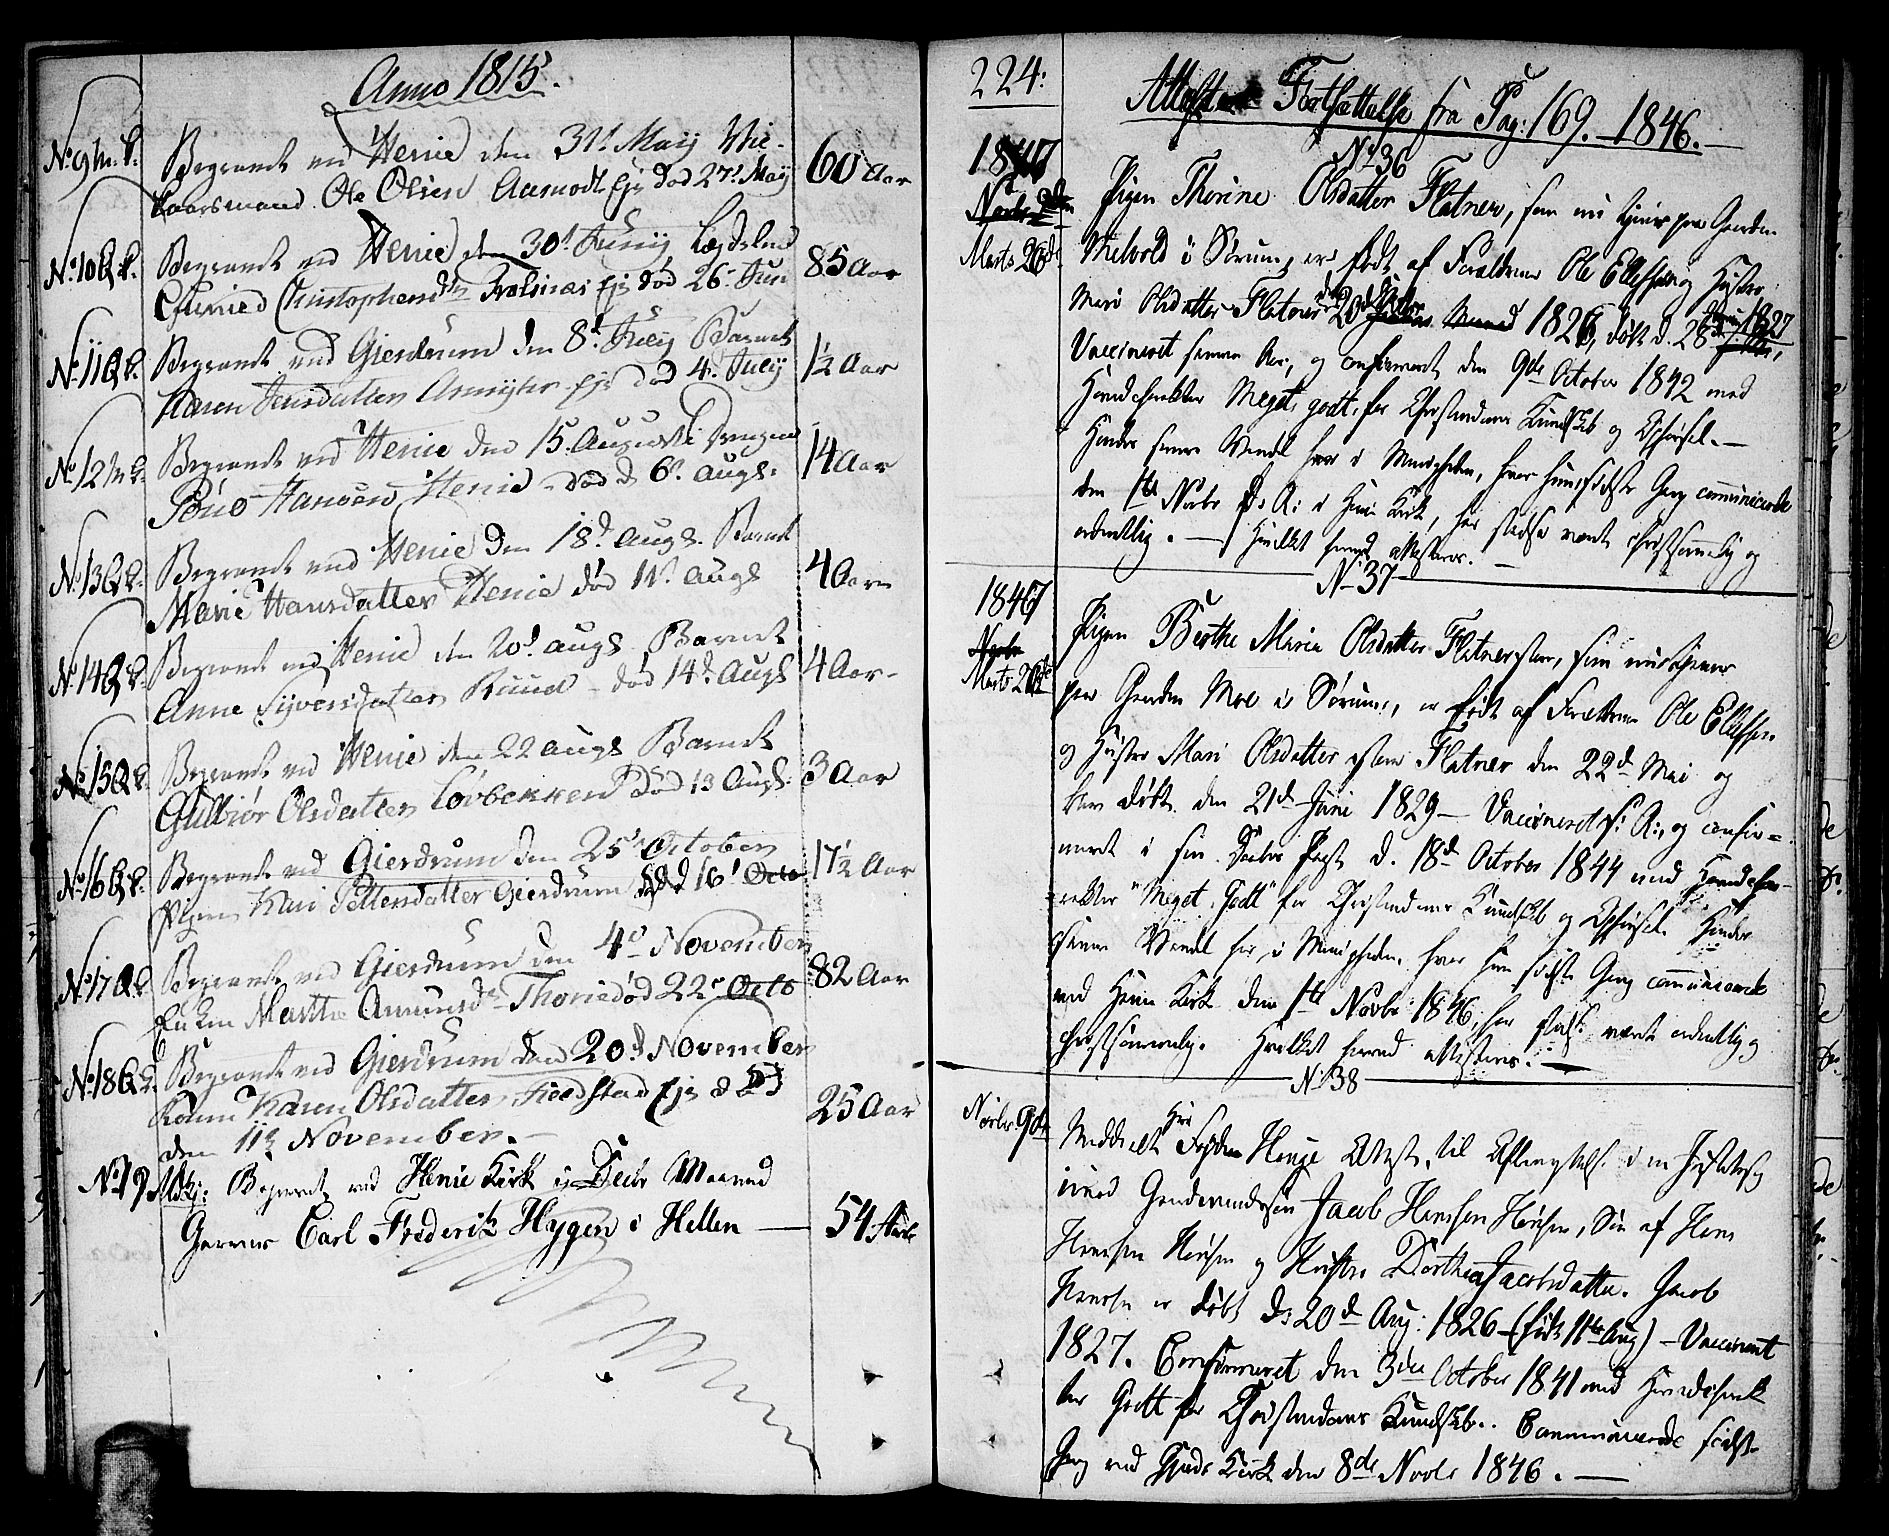 Anno 1815.
No 9 M. k. Begravet ved Henie den 31t Maij Hie-
Ole Olsen Aamodt Eje død 27t Maij 60 Aar
No 10 Q.k. Begravet ved Henie den 30t Junij Lægdslem
Christophersdtr Frolsnæs Eje død 26t Jun 85 Aar
No 11 Q.k. Begravet ved Gierdrum den 8d July Barnet
Karen Jensdatter Eje død 4d July 1½ Aar
No 12 M.k. Begravet ved Henie den 15 Augusti Drengen
Hansen Henie død d 6t Augs: 14 Aar
No 13 Q.k. Begravet ved Henie den 18d Augs. Barnet
Marie Hansdatter Henie død 11t Augs 4 Aar
No 14 Q.k. Begravet ved Henie den 20d Augs Barnet
Anne Syversdatter Ruud død 14d Augs 4 Aar
No 15 Q.k. Begravet ved Henie den 22 Augs Barnet
Gulbiør Olsdatter Løvbekken Død 13 Augs. 3 Aar
No 16 Q.k. Begravet ved Gierdrum den 25t October
Pigen Kari Pettersdatter Gierdrum død 16t Octo 17½ Aar
No 17 Q.k. Begravet ved Gierdrum den 4d November
Enken Marthe Amunds Thorie død 22d Octo 82 Aar
No 18 Q.k. Begravet ved Gierdrum den 20d November
Konen Karen Olsdatter Eje død
den 11t November. 25 Aar
No 19 M.k: Begravet ved Henie Kirk i Decbr Maaned
Garver Carl Frederik Hygen i Hellen — 54 Aar
224:
Attester Fortsættelse fra Pag: 169. — 1846.
No 36
1847
Marts 26de
Pigen Thorine Olsdatter Flatner, som nu tjener paa Gaarden
Melvold i Sørum, er født af Forældrene Ole Ellefsen og Hustru
Mari Olsdatter Flatner 20d 1826, døbt d. 28d 1827
Vaccineret samme Aar, og confirmeret den 9de October 1842 med
Hovedcharakter Meget godt, for Christendoms Kundskb og Opførsel. —
Hendes senere Vandel har i Menigheden, hvor hun sidste Gang communicerede
den 1ste Novbr s: A: i Henie Kirk, har stedse været christsømmelig og
ordentlig. — Hvilket herved attesteres. —
No 37
1847
Marts 26de
Pigen Berthe Maria Olsdatter Flatnerstuen, som nu tjener
paa Gaarden Moe i Sørum, er født af Forældrene Ole Ellefsen
og Hustru Mari Olsdatter Flatner den 22d Mai og
blev døbt den 21d Juni 1829 — Vaccineret s: A:, og confir=
meret i sin d. 18d October 1844 med Hovedcha-
rakter "Meget Godt" for Christendoms Kundskb og Opførsel. Hendes
senere Vandel har, i Menigheden, hvor hun sidste Gang communicerede
ved Henie Kirk den 1ste Novbr 1846, har stedse været ordentlig og
christsømmelig. Hvilket herved attesteres. —
No 38
Novbr 9de
Meddeelt Hr Fogden Attest, til Afbenyttelse i en Justitssag
imod Gaardmandssøn Jacob Hansen Søn af Hans
Hansen og Hustru Dorthea Jacobsdatter. Jacob
Hansen er døbt d: 20d Aug: 1826 — (født 11te Aug) — Vaccineret
1827. Confirmeret den 3die October 1841 med Hovedcharak
ter Godt for Christendoms Kundskb. Communicerede sidste
Gang ved Kirk den 8de Novbr 1846. —